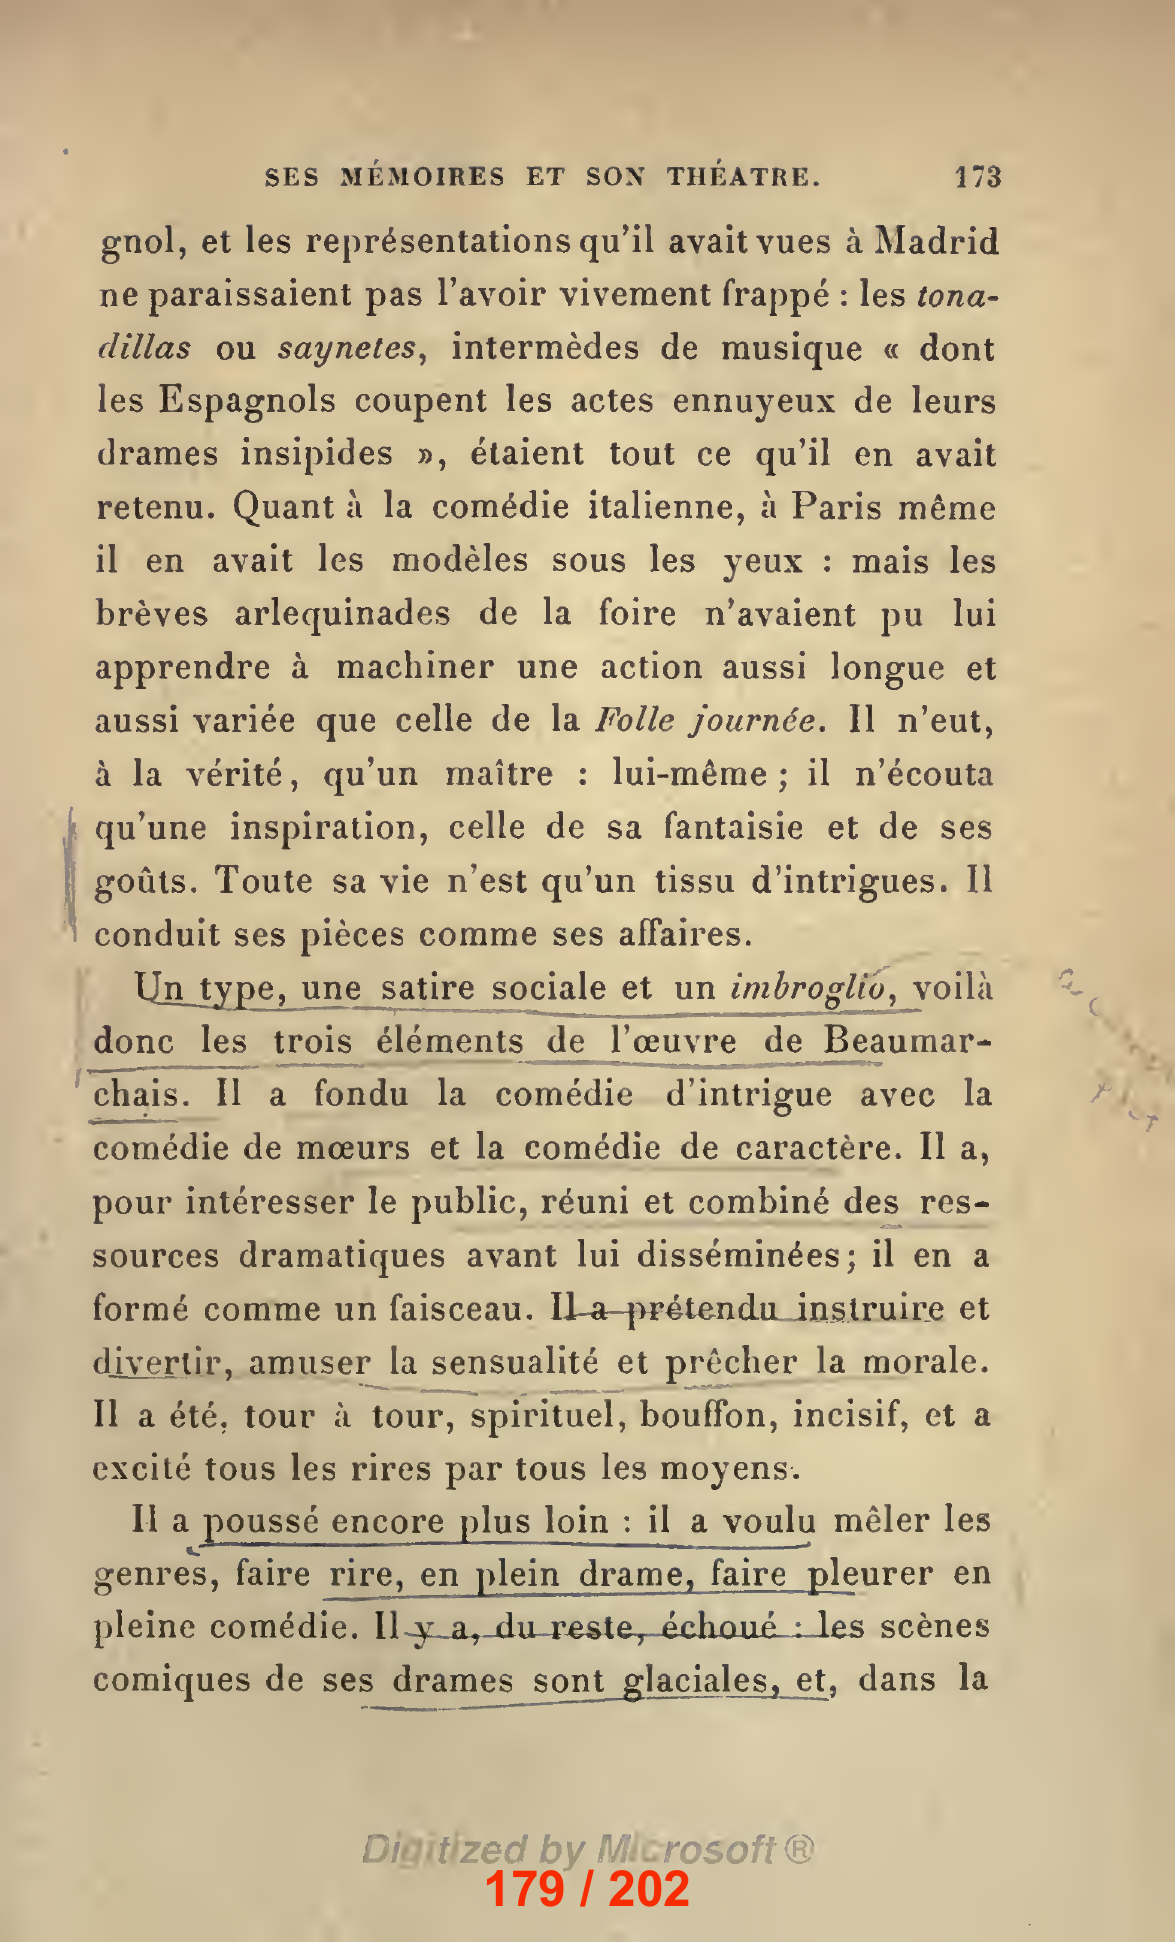 SES MÉMOIRES ET SON THÉATRE. 173
gnol, et les représentations qu'il avait vues à Madrid
ne paraissaient pas l'avoir vivement frappé : les tona-
dillas ou saynetes, intermèdes de musique « dont
les Espagnols coupent les actes ennuyeux de leurs
drames insipides », étaient tout ce qu'il en avait
retenu. Quant à la comédie italienne, à Paris même
il en avait les modèles sous les yeux : mais les
brèves arlequinades de la foire n'avaient pu lui
apprendre à machiner une action aussi longue et
aussi variée que celle de la Folle journée. Il n'eut,
à la vérité, qu'un maître : lui-même ; il n'écouta
qu'une inspiration, celle de sa fantaisie et de ses
goûts. Toute sa vie n'est qu'un tissu d'intrigues. Il
conduit ses pièces comme ses affaires.
Un type, une satire sociale et un imbroglio, voilà
donc les trois éléments de l'œuvre de Beaumar-
chais. Il a fondu la comédie d'intrigue avec la
comédie de mœurs et la comédie de caractère. Il a,
pour intéresser le public, réuni et combiné des res-
sources dramatiques avant lui disséminées; il en a
formé comme un faisceau. Il a prétendu instruire et
divertir, amuser la sensualité et prêcher la morale.
Il a été, tour à tour, spirituel, bouffon, incisif, et a
excité tous les rires par tous les moyens.
Il a poussé encore plus loin : il a voulu mêler les
genres, faire rire, en plein drame, faire pleurer en
pleine comédie. Il y a, du reste, échoué : les scènes
comiques de ses drames sont glaciales, et, dans la
Digitized by Microsoft ®
179 / 202